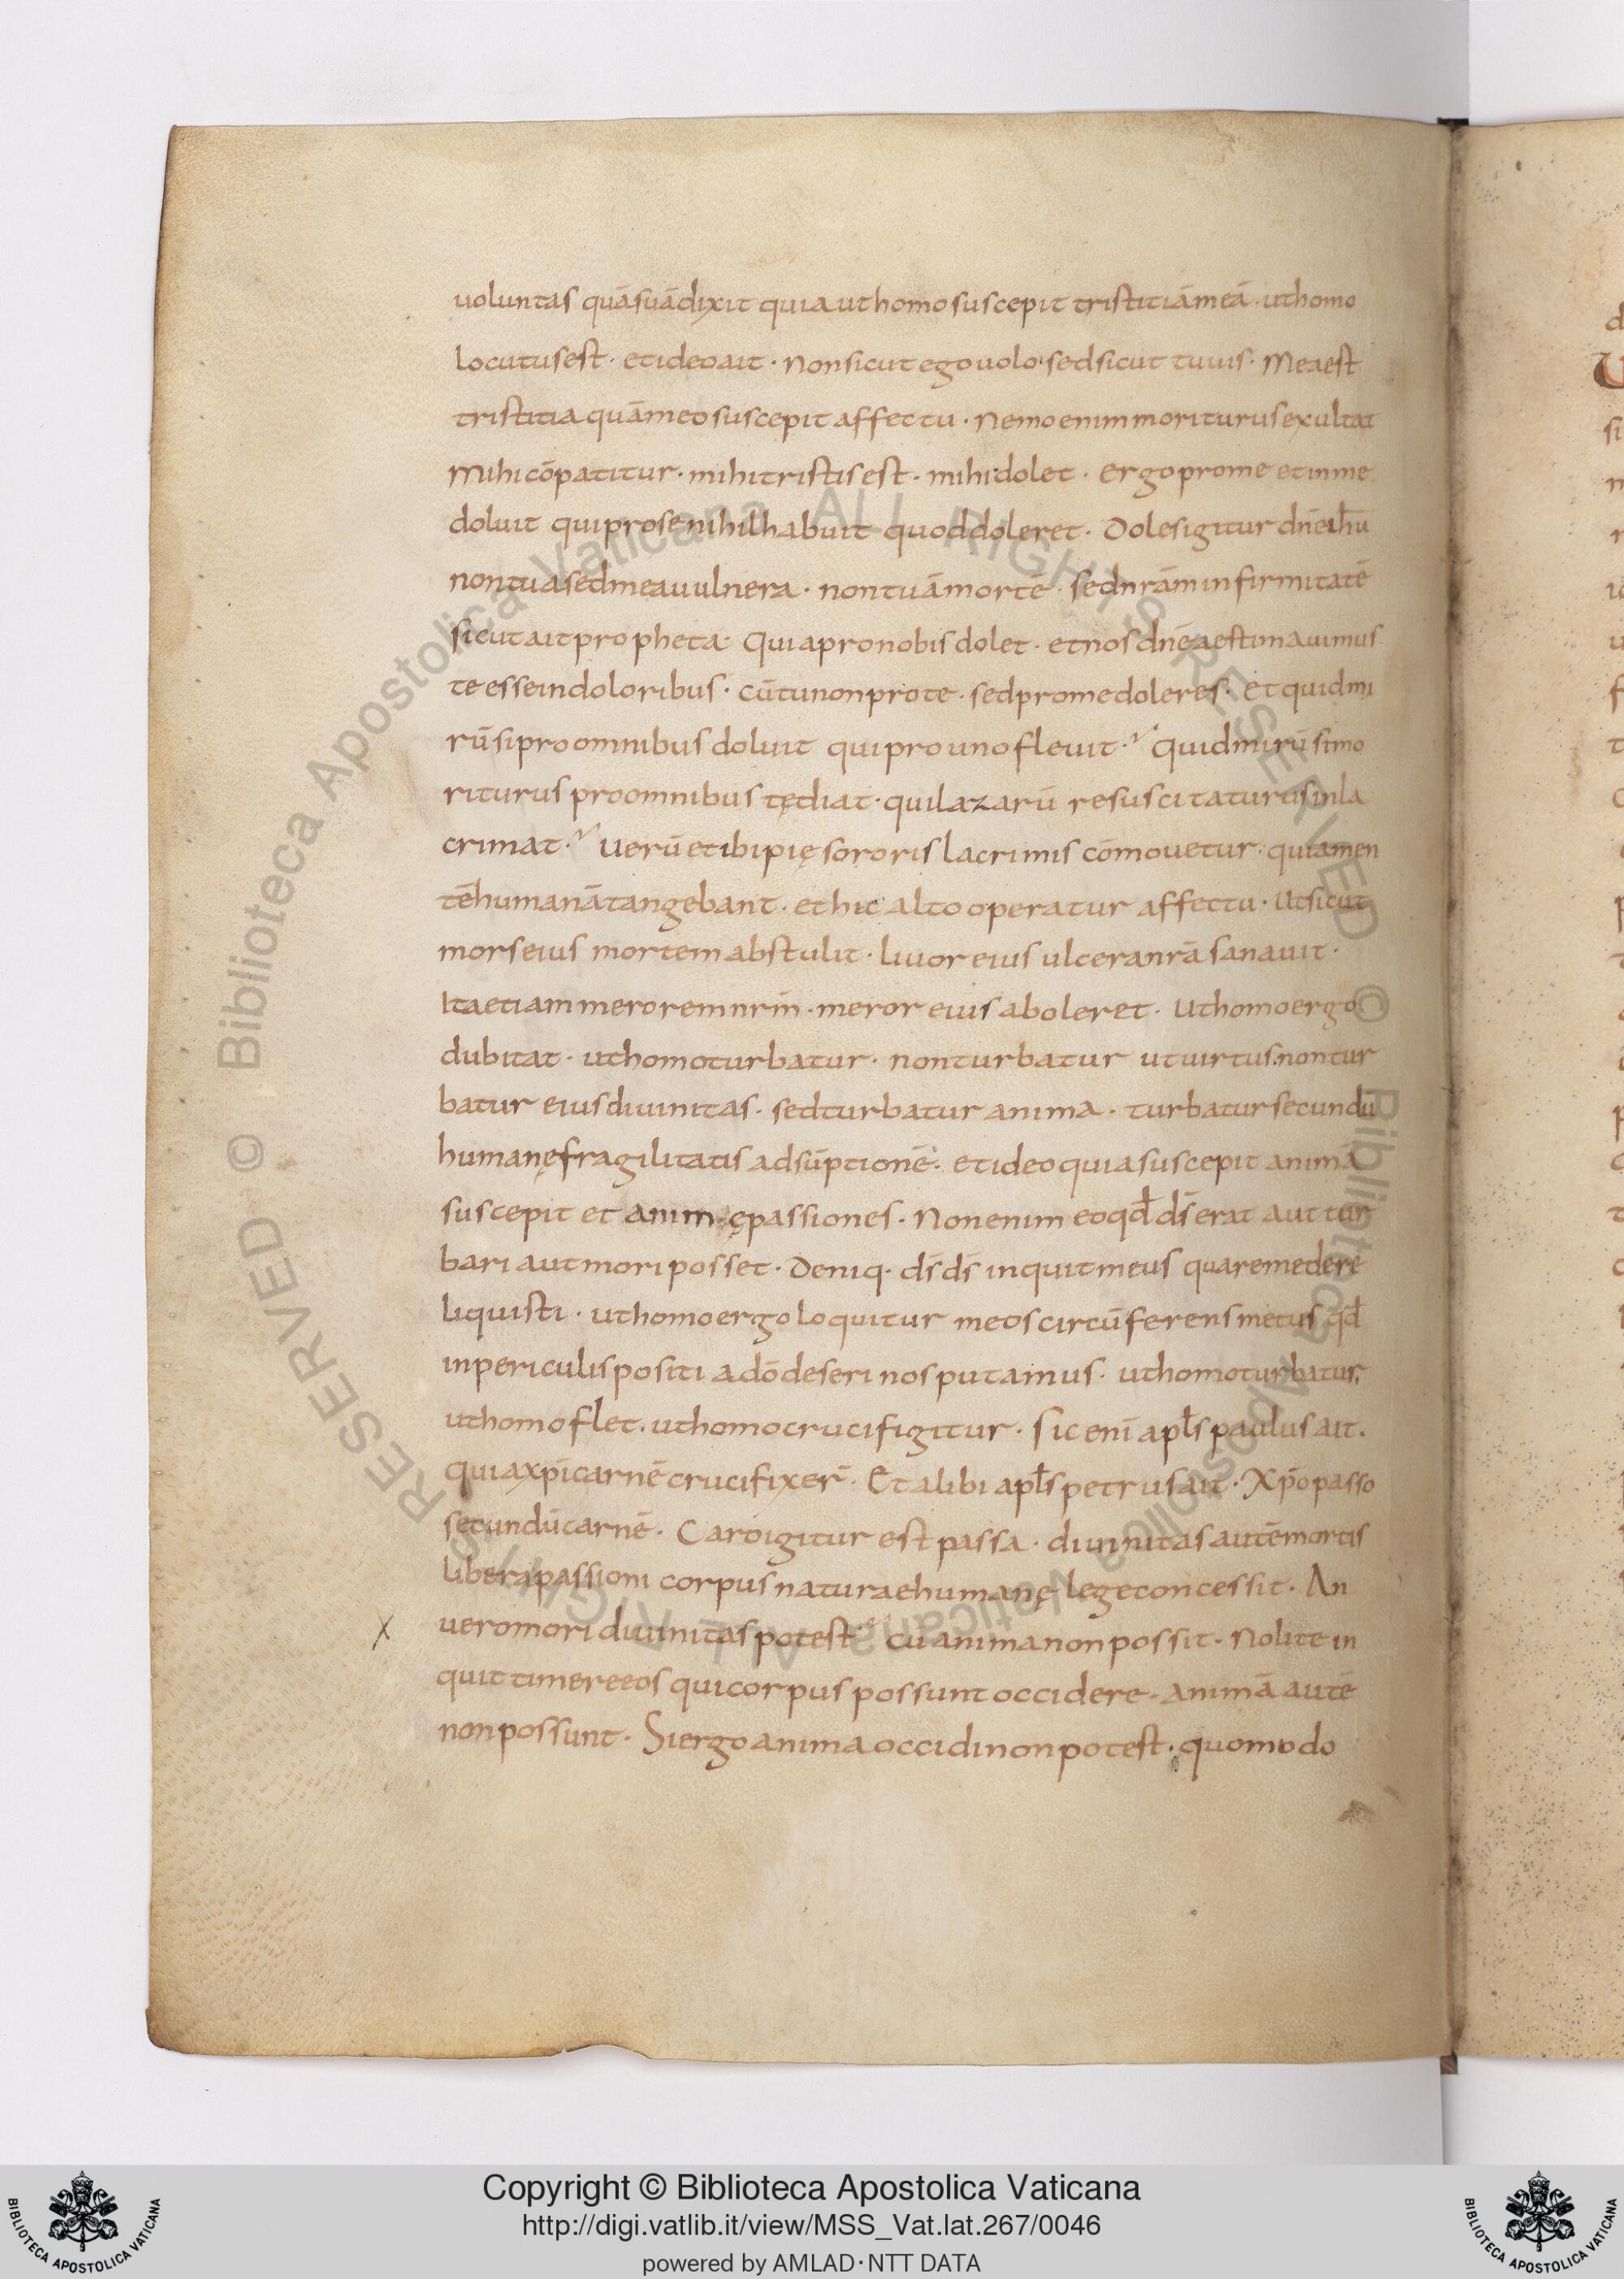 uoluntas quā suā dixit quia ut homo suscepit tristitiā meā · ut homo
locutus est · et ideo ait · Non sicut ego uolo · sed sicut tu uis · Mea est
tristitia quā meo suscepit affectu · Nemo enim moriturus exultat
Mihi cōpatitur · mihi tristis est · mihi dolet · ergo pro me et in me
doluit qui pro se nihil habuit quod doleret · Doles igitur dn̄e ih̄u
non tua sed mea uulnera · non tuā mortē · sed nr̄am infirmitatē
sicut ait propheta · Quia pro nobis dolet · et nos dn̄e aestimauimus
te esse in doloribus · cū tu non pro te · sed pro me doleres · Et quid mi
rū si pro omnibus doluit qui pro uno fleuit · Quid mirū si mo
riturus pro omnibus tędiat · qui lazarū resuscitaturus inla
crimat · Uerū et ibi pię sororis lacrimis cōmouetur · quia men
tē humanā tangebant · et hic alto operatur affectu · Ut sicut
mors eius mortem abstulit · liuor eius ulcera nr̄a sanauit ·
Ita etiam merorem nr̄m · meror eius aboleret · Ut homo ergo
dubitat · ut homo turbatur · non turbatur ut uirtus · non tur
batur eius diuinitas · sed turbatur anima · turbatur secundū
humanę fragilitatis adsūptionē · et ideo quia suscepit animā
suscepit et animę passiones · Non enim eo qd̄ d̄s erat aut tur
bari aut mori posset · Deniq · d̄s d̄s inquit meus quare me dere
liquisti · ut homo ergo loquitur meos circūferens metus qd̄
in periculis positi a dō deseri nos putamus · ut homo turbatur ·
ut homo flet · ut homo crucifigitur · Sic enī apl̄s paulus ait ·
quia xp̄i carnē crucifixer̄ · Et alibi apl̄s petrus ait · Xp̄o passo
secundū carnē · Caro igitur est passa · diuinitas autē mortis
libera passioni corpus naturae humanę lege concessit · An
uero mori diuinitas potest · cū anima non possit · Nolite in
quit timere eos qui corpus possunt occidere · animā autē
non possunt · Si ergo anima occidi non potest · quomodo
Copyright © Biblioteca Apostolica Vaticana
http://digi.vatlib.it/view/MSS_Vat.lat.267/0046
powered by AMLAD · NTT DATA
BIBLIOTECA APOSTOLICA VATICANA
BIBLIOTECA APOSTOLICA VATICANA
© Biblioteca Apostolica Vaticana ALL RIGHTS RESERVED
© Biblioteca Apostolica Vaticana ALL RIGHTS RESERVED